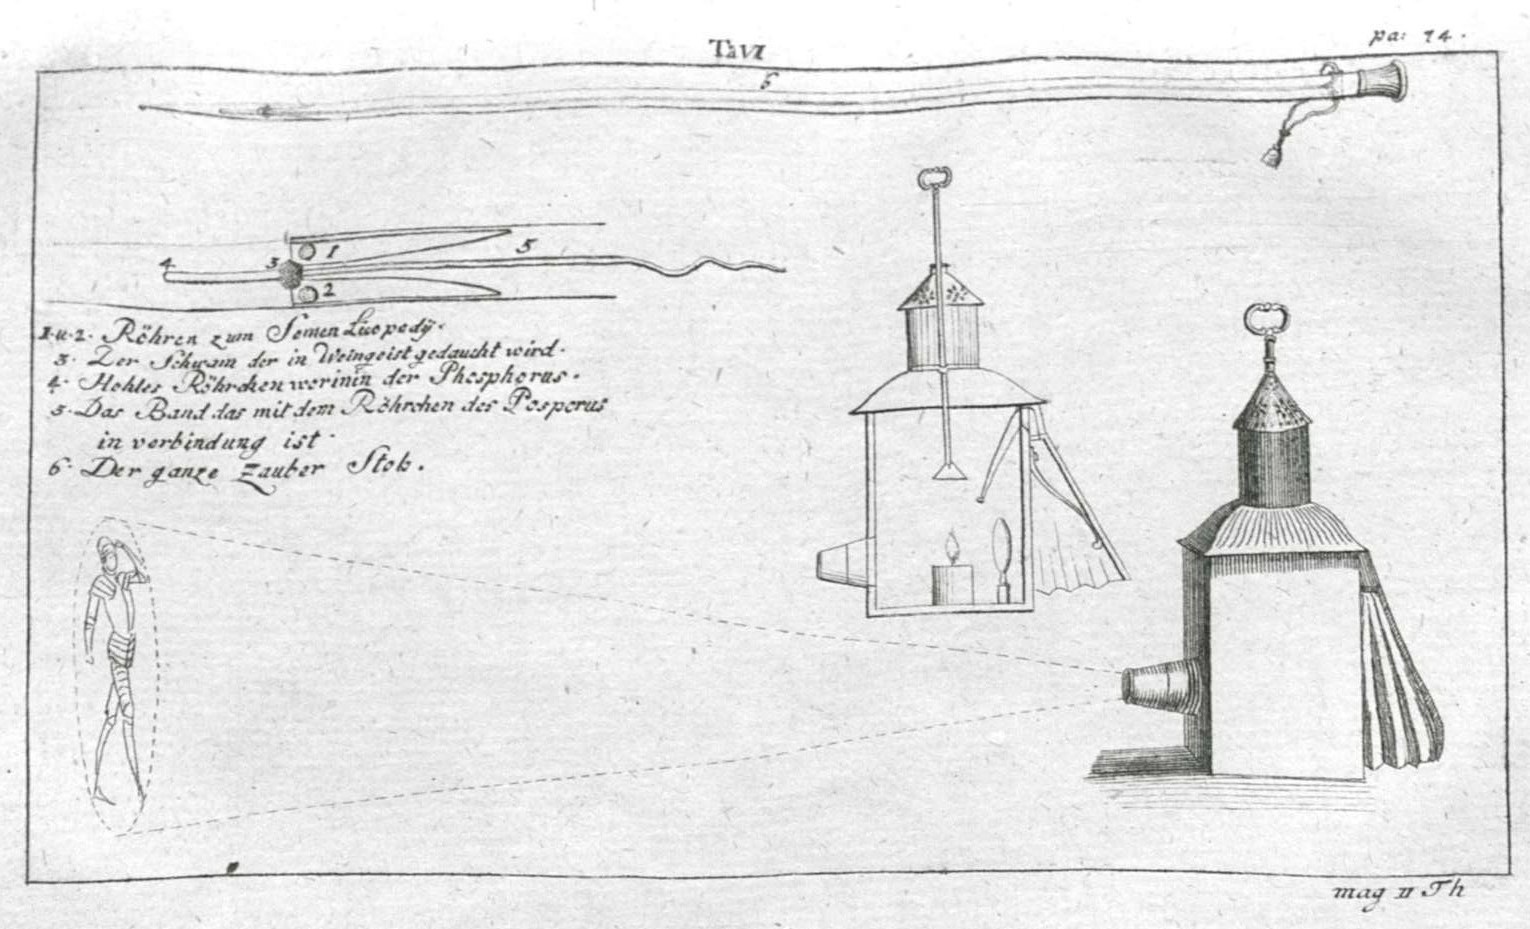 Ta VI
pa: 14.
6
1
5
4
3
2
1. u. 2. Röhren zum Semen Licopodÿ.
3. Der Schwam der in Weingeist gedaucht wird.
4. Hohles Röhrchen worinin der Phosphorus.
5. Das Band das mit dem Röhrchen des Posporus
in verbindung ist.
6. Der ganze Zauber Stok.
mag II Th